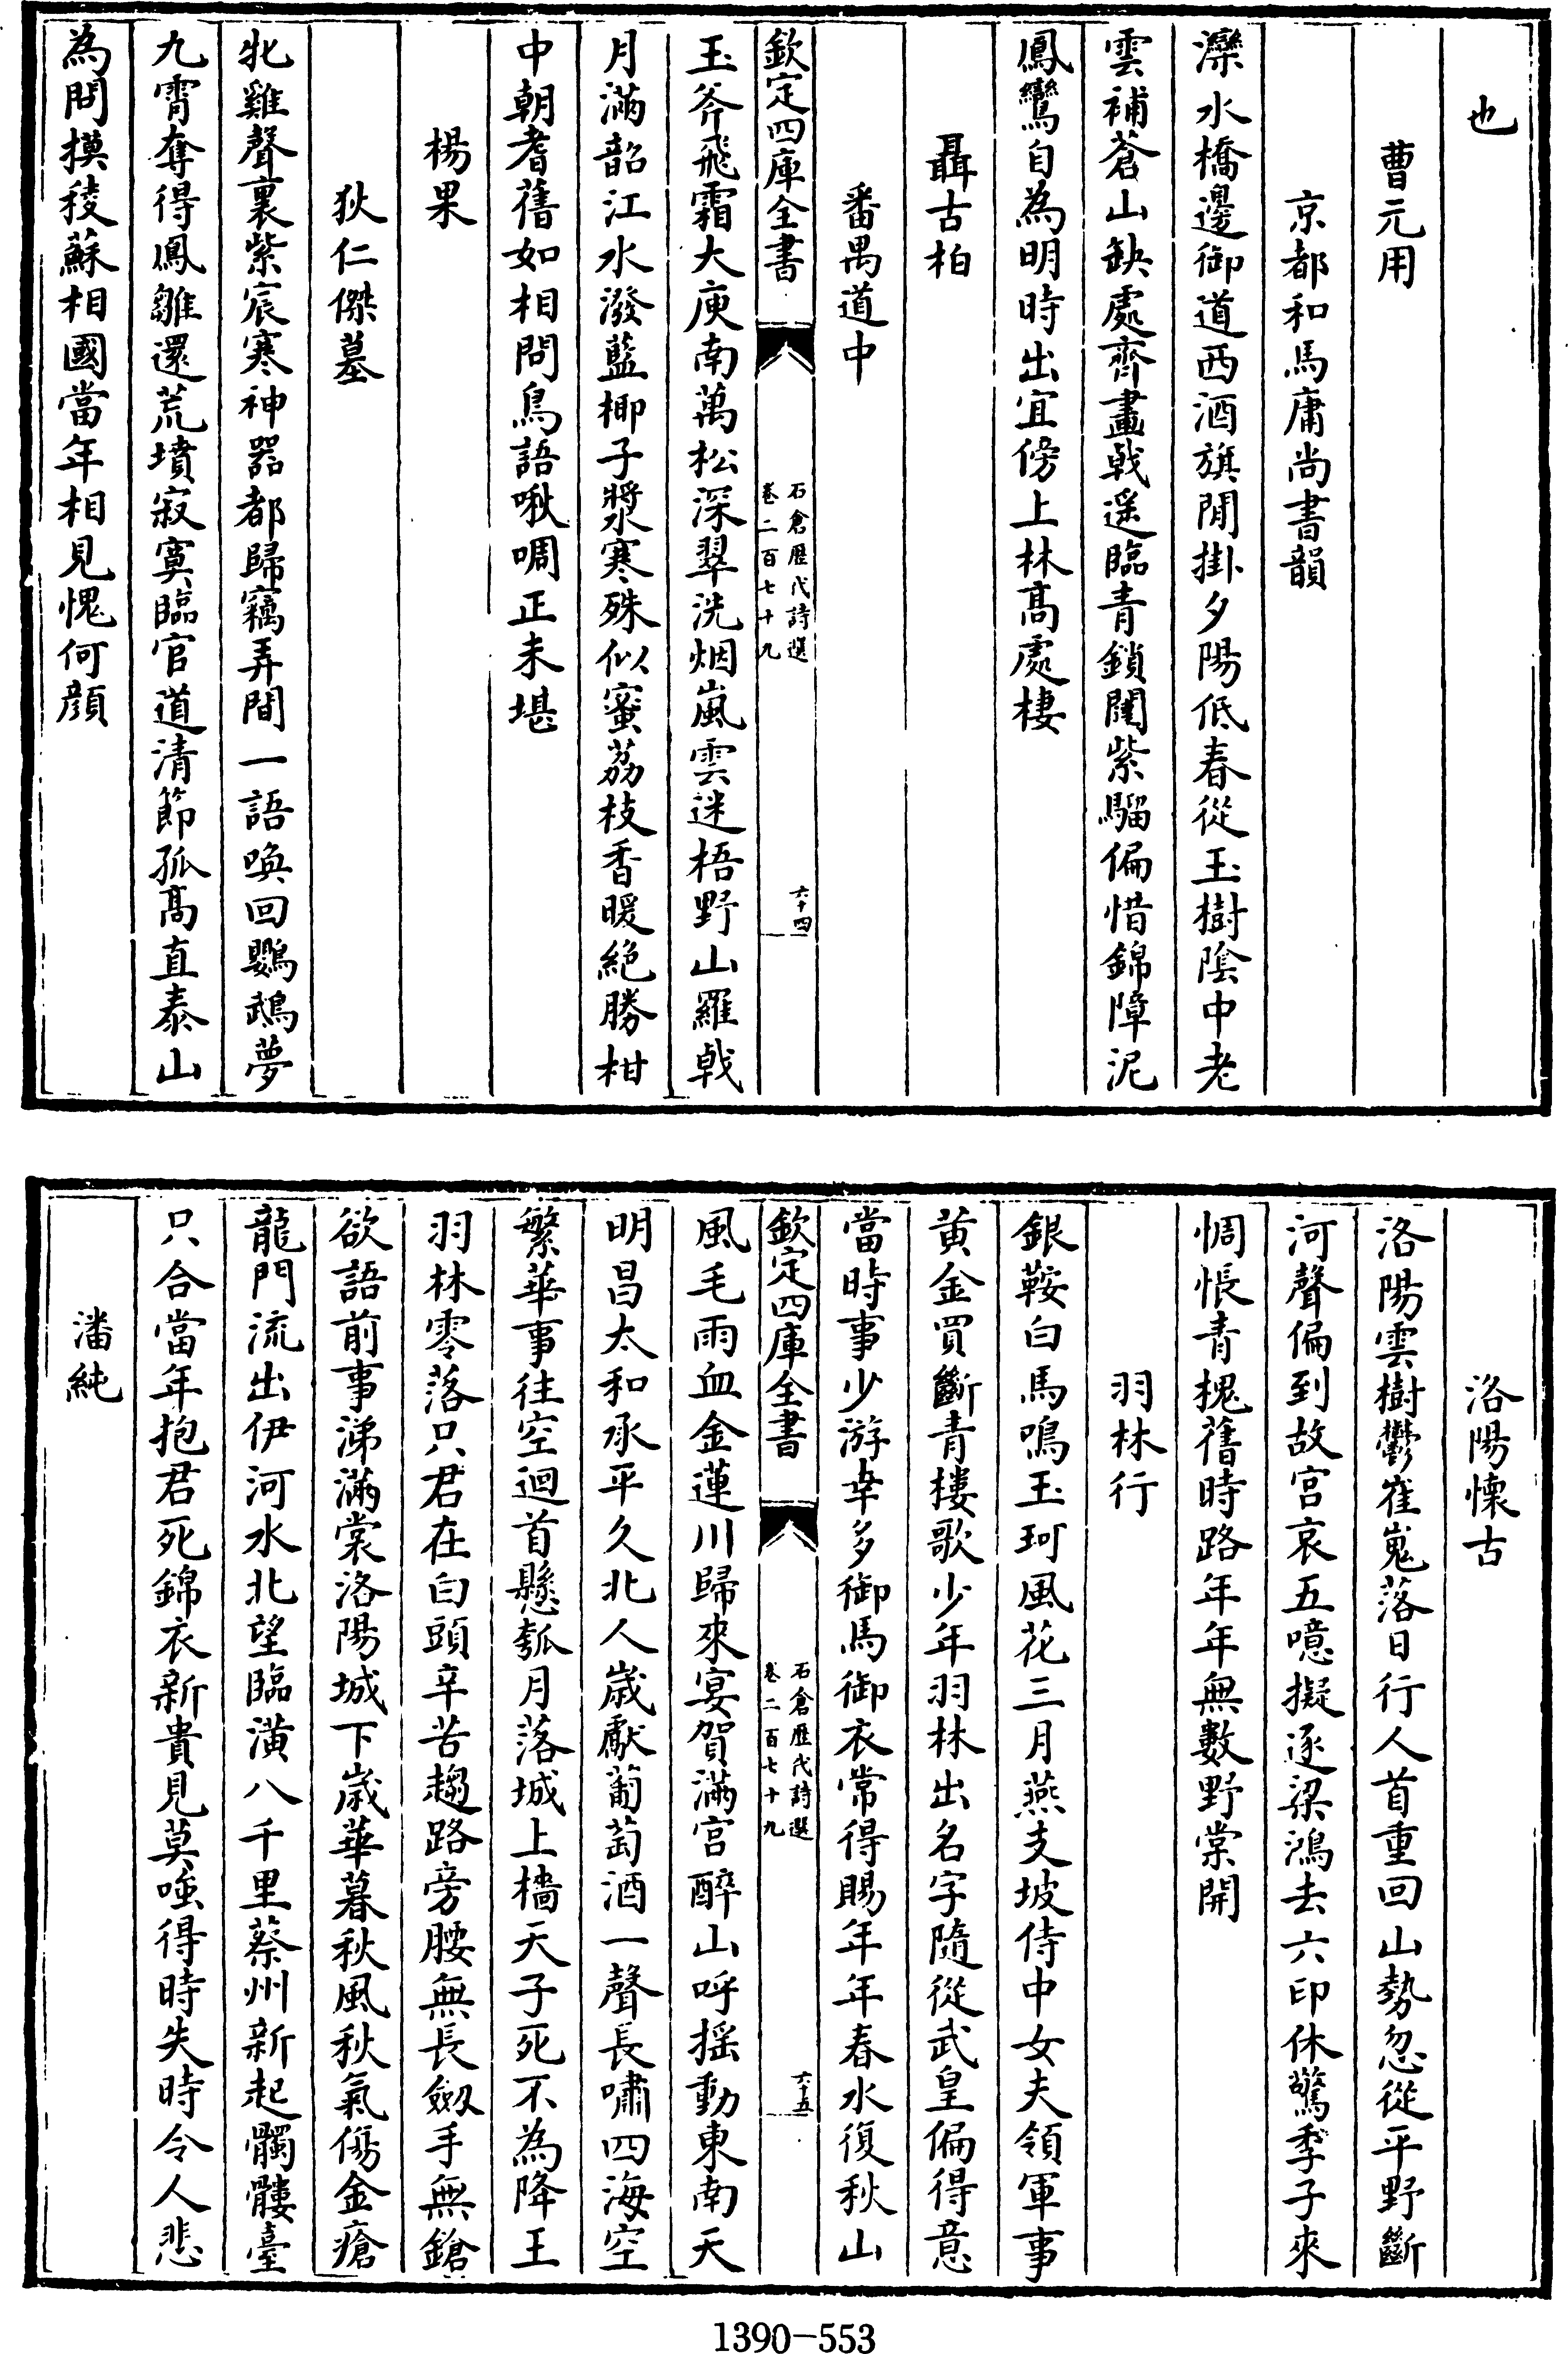 也
曹元用
京都和馬庸尚書韻
灤水橋邊御道西酒旗閒掛夕陽低春從玉樹陰中老
雲補蒼山缺處齊畫戟遥臨青鎖闥紫騮偏惜錦障泥
鳳鸞自為明時出宜傍上林髙處棲
聶古柏
番禺道中
欽定四庫全書
石倉歷代詩選
卷二百七十九
六十四
玉斧飛霜大庾南萬松深翠洗烟嵐雲迷梧野山羅戟
月滿韶江水潑藍椰子漿寒殊似蜜荔枝香暖絶勝柑
中朝耆舊如相問鳥語啾啁正未堪
楊果
狄仁傑墓
牝雞聲裏紫宸寒神器都歸竊弄間一語喚回鸚鵡夢
九霄奪得鳳雛還荒墳寂寞臨官道清節孤髙直泰山
為問摸稜蘇相國當年相見愧何顔
洛陽懷古
洛陽雲樹鬱崔嵬落日行人首重回山勢忽從平野斷
河聲偏到故宫哀五噫擬逐梁鴻去六印休驚季子來
惆悵青槐舊時路年年無數野棠開
羽林行
銀鞍白馬鳴玉珂風花三月燕支坡侍中女夫領軍事
黄金買斷青樓歌少年羽林出名字隨從武皇偏得意
當時事少游幸多御馬御衣常得賜年年春水復秋山
欽定四庫全書
石倉歷代詩選
卷二百七十九
六十五
風毛雨血金蓮川歸來宴賀滿宫醉山呼揺動東南天
明昌太和承平久北人歳獻葡萄酒一聲長嘯四海空
繁華事往空迴首懸瓠月落城上檣天子死不為降王
羽林零落只君在白頭辛苦趨路旁腰無長劒手無鎗
欲語前事涕滿裳洛陽城下歳華暮秋風秋氣傷金瘡
龍門流出伊河水北望臨潢八千里蔡州新起髑髏臺
只合當年抱君死錦衣新貴見莫嗤得時失時令人悲
潘純
1390-553